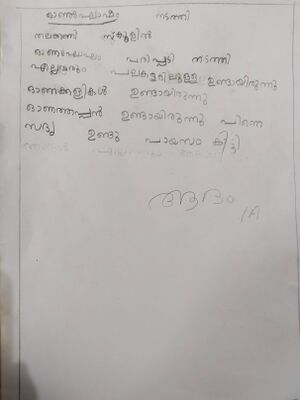 ഓണഘോഷം നടത്തി
നലങ്ങി സ്കൂളിൽ
ഓണഘോഷം പരിപ്പടി നടത്തി
എല്ലവരും ഉണ്ടായിരുന്നു
ഓണക്കളികൾ ഉണ്ടായിരുന്നു
ഓണത്തപ്പൻ ഉണ്ടായിരുന്നു പിന്നെ
സദ്യ ഉണ്ടു പായസം കിട്ടി
ആദം
1A